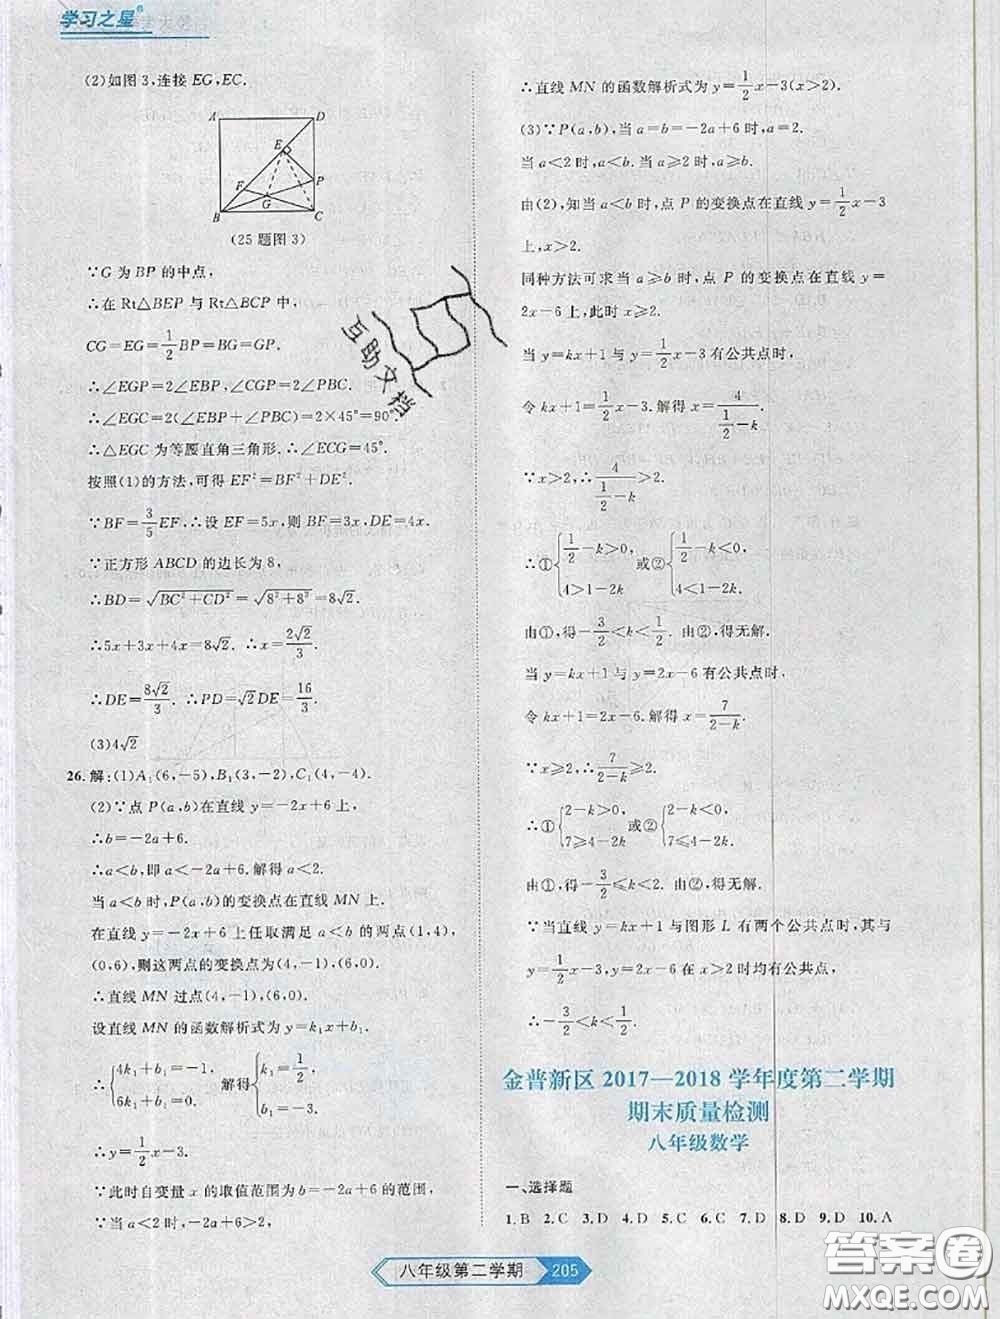 学习之星®
(2)如图3,连接EG,EC.
A D
E
F P
G
B C
(25题图3)
∵G为BP的中点,
∴在Rt△BEP与Rt△BCP中,
CG=EG=1/2BP=BG=GP.
∴∠EGP=2∠EBP,∠CGP=2∠PBC.
∴∠EGC=2(∠EBP+∠PBC)=2×45°=90°.
∴△EGC为等腰直角三角形.∴∠ECG=45°.
按照(1)的方法,可得EF²=BF²+DE².
∵BF=3/5EF.∴设EF=5x,则BF=3x,DE=4x.
∵正方形ABCD的边长为8,
∴BD=√(BC²+CD²)=√(8²+8²)=8√2.
∴5x+3x+4x=8√2. ∴x=2√2/3.
∴DE=8√2/3. ∴PD=√2DE=16/3.
(3)4√2
26.解:(1)A₁(6,-5),B₁(3,-2),C₁(4,-4).
(2)∵点P(a,b)在直线y=-2x+6上,
∴b=-2a+6.
∴a<b,即a<-2a+6.解得a<2.
当a<b时,P(a,b)的变换点在直线MN上.
在直线y=-2x+6上任取满足a<b的两点(1,4),
(0,6),则这两点的变换点为(4,-1),(6,0).
∴直线MN过点(4,-1),(6,0).
设直线MN的函数解析式为y=k₁x+b₁.
∴{4k₁+b₁=-1, 6k₁+b₁=0. 解得{k₁=1/2, b₁=-3.
∴y=1/2x-3.
∵此时自变量x的取值范围为b=-2a+6的范围,
∵当a<2时,-2a+6>2,
∴直线MN的函数解析式为y=1/2x-3(x>2).
(3)∵P(a,b),当a=b=-2a+6时,a=2.
当a<2时,a<b.当a≥2时,a≥b.
由(2),知当a<b时,点P的变换点在直线y=1/2x-3
上,x>2.
同种方法可求当a≥b时,点P的变换点在直线y=
2x-6上,此时x≥2.
当y=kx+1与y=1/2x-3有公共点时,
令kx+1=1/2x-3.解得x=4/(1/2-k).
∵x>2,∴4/(1/2-k)>2.
∴①{1/2-k>0, 4>1-2k 或②{1/2-k<0, 4<1-2k.
由①,得-3/2<k<1/2.由②,得无解.
当y=kx+1与y=2x-6有公共点时,
令kx+1=2x-6.解得x=7/(2-k).
∵x≥2,∴7/(2-k)≥2.
∴①{2-k>0, 7≥4-2k 或②{2-k<0, 7≤4-2k.
由①,得-3/2≤k<2.由②,得无解.
∵当直线y=kx+1与图形L有两个公共点时,其与
y=1/2x-3,y=2x-6在x>2时均有公共点,
∴-3/2<k<1/2.
金普新区2017—2018学年度第二学期
期末质量检测
八年级数学
一、选择题
1.B 2.C 3.D 4.D 5.C 6.C 7.D 8.D 9.D 10.A
八年级第二学期 205
互助文档
答案卷
MXQE.COM